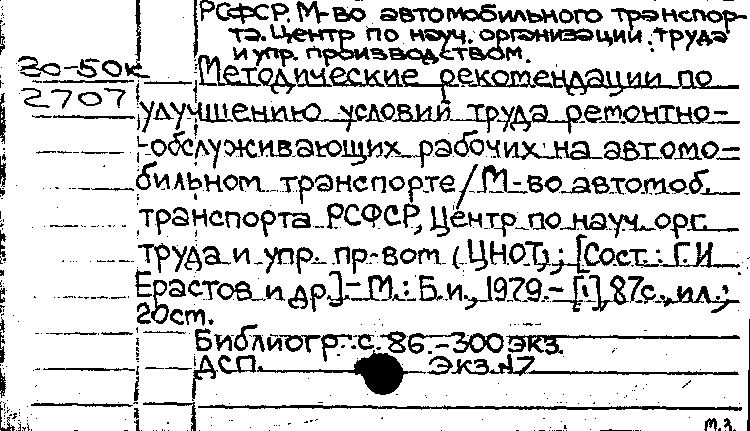 РСФСР. М-во автомобильного транспор-
та. Центр по науч. организации труда
и упр. производством.
80-50к Методические рекомендации по
2707 улучшению условий труда ремонтно-
-обслуживающих рабочих на автомо-
бильном транспорте/М-во автомоб.
транспорта РСФСР, Центр по науч. орг.
труда и упр. пр-вом (ЦНОТ); [Сост.: Г.И
Ерастов и др.]-М.: Б.и., 1979.- [1], 87с., ил.;
20см.
Библиогр.: с. 86.-300 экз.
ДСП. Экз.N7
м.з.